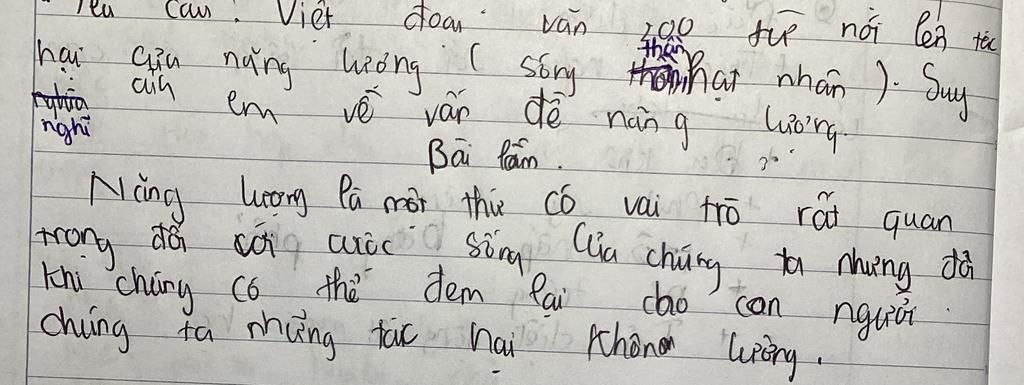 Yêu cầu: Viết đoạn văn 200 từ nói lên tác
hại của năng lượng ( sóng thần, hạt nhân ). Suy
nghĩ của em về vấn đề năng lượng.
Bài làm.
Năng lượng là một thứ có vai trò rất quan
trọng đối với cuộc sống của chúng ta nhưng đôi
khi chúng có thể đem lại cho con người
chúng ta những tác hại không lường.